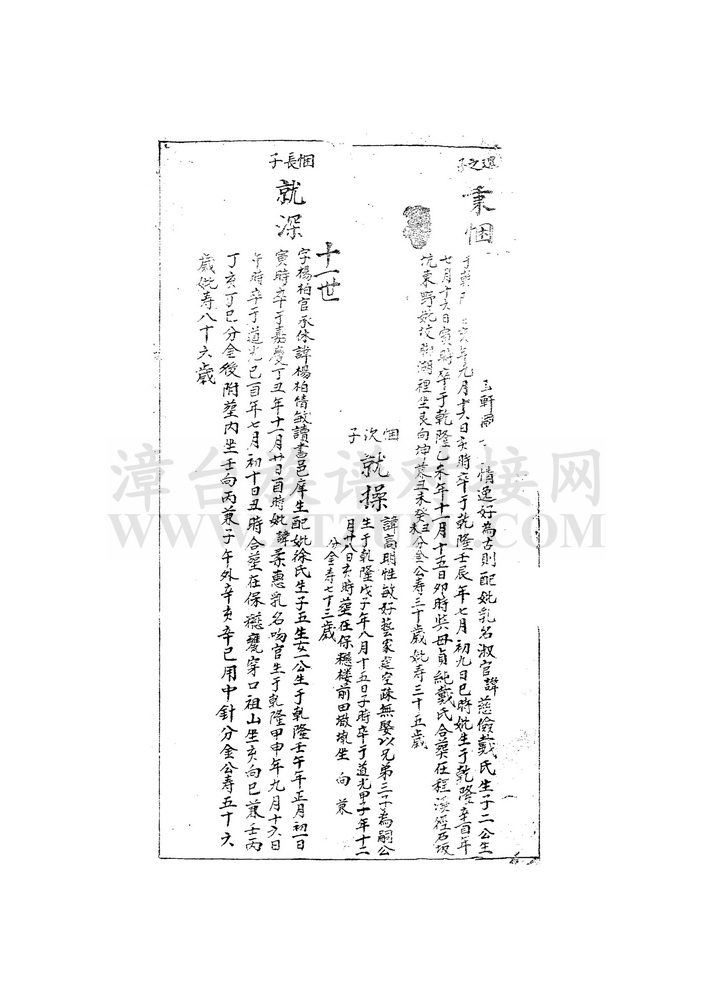 還之子
秉悃
玉軒
情逸好為古則配妣乳名淑官諱慈儉戴氏生子二公生
于乾
亥年九月十六日亥時卒于乾隆壬辰年七月初九日巳時妣生于乾隆辛酉年
七月十六日寅時卒于乾隆乙未年十一月十五日卯時與母貞純戴氏合葬在程溪徑石坂
坑東野妣坟
湖裡坐艮向坤兼丑未癸丑癸未分金公寿三十歲妣寿三十五歲
悃次子
就操
諱高明性敏好藝家庭空疎無娶以兄弟三子為嗣公
生于乾隆戊子年八月十五日子時卒于道光甲子年十二
月廿八日亥時塟在保穩樓前田墘坐 向 兼
分金寿七十三歲
十一世
悃長子
就深
字楊柏官承休諱楊柏倩敏讀書邑庠生配妣徐氏生子五生女一公生于乾隆壬午年正月初一日
寅時卒于嘉慶丁丑年十一月廿日酉時妣諱柔惠乳名吻官生于乾隆甲申年九月十六日
午時卒于道光己酉年七月初十日丑時合塟在保穩甕穿口祖山坐亥向巳兼壬丙
丁亥丁巳分金後附塟内坐壬向丙兼子午外辛亥辛巳用中針分金公寿五十六
歲妣寿八十六歲
漳台族谱对接网